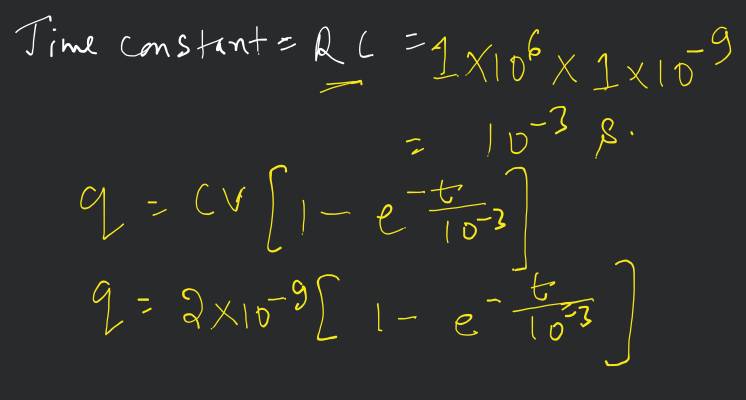 Time constant = RC = 1 × 10⁶ × 1 × 10⁻⁹
= 10⁻³ s.
q = CV [1 − e^(−t/10⁻³)]
q = 2 × 10⁻⁹ [1 − e^(−t/10⁻³)]